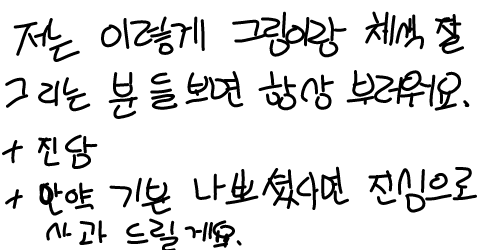 저는 이렇게 그림이랑 채색 잘
그리는 분들보면 항상 부러워요.
+ 진담
+ 만약 기분 나쁘셨다면 진심으로
사과 드릴게요.